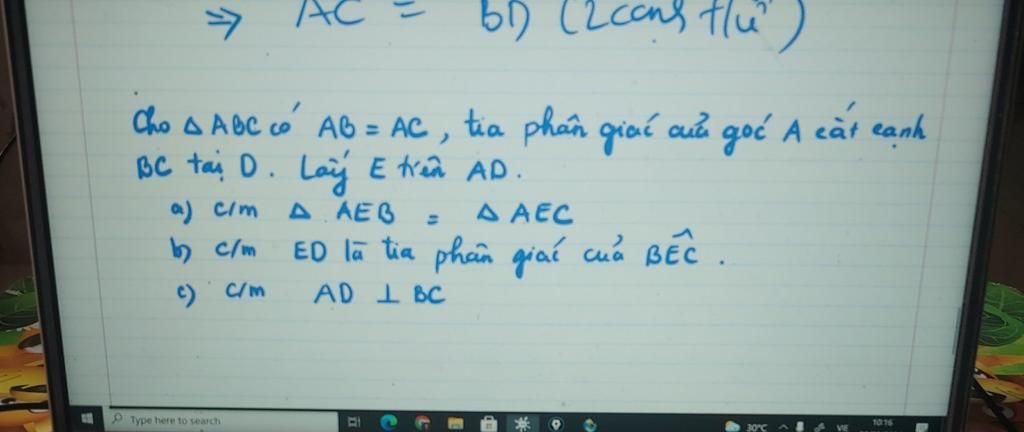 => AC = BD (2 cạnh t/ư)
Cho Δ ABC có AB = AC, tia phân giác của góc A cắt cạnh
BC tại D. Lấy E trên AD.
a) c/m Δ AEB = Δ AEC
b) c/m ED là tia phân giác của BÊC.
c) c/m AD ⊥ BC
Type here to search
30°C
VIE
10:16